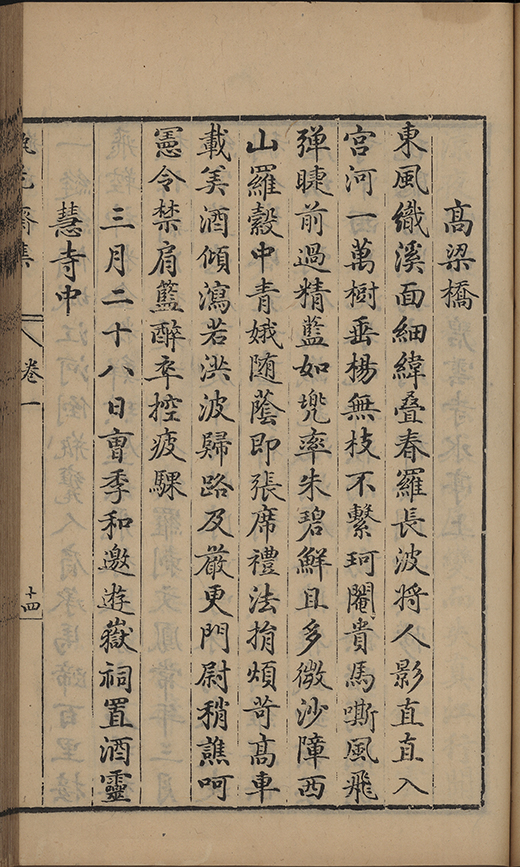 高梁橋
東風織溪面細緯叠春羅長波將人影直直入
宮河一萬樹垂楊無枝不繫珂閹貴馬嘶風飛
弾睫前過精藍如兠率朱碧鮮且多微沙障西
山羅縠中青娥随蔭即張席禮法捐煩苛髙車
載美酒傾瀉若洪波歸路及嚴更門尉稍譙呵
憲令禁肩籃醉卒控疲騾
三月二十八日曹季和邀遊嶽祠置酒靈
慧寺中
齋集
卷一
十四